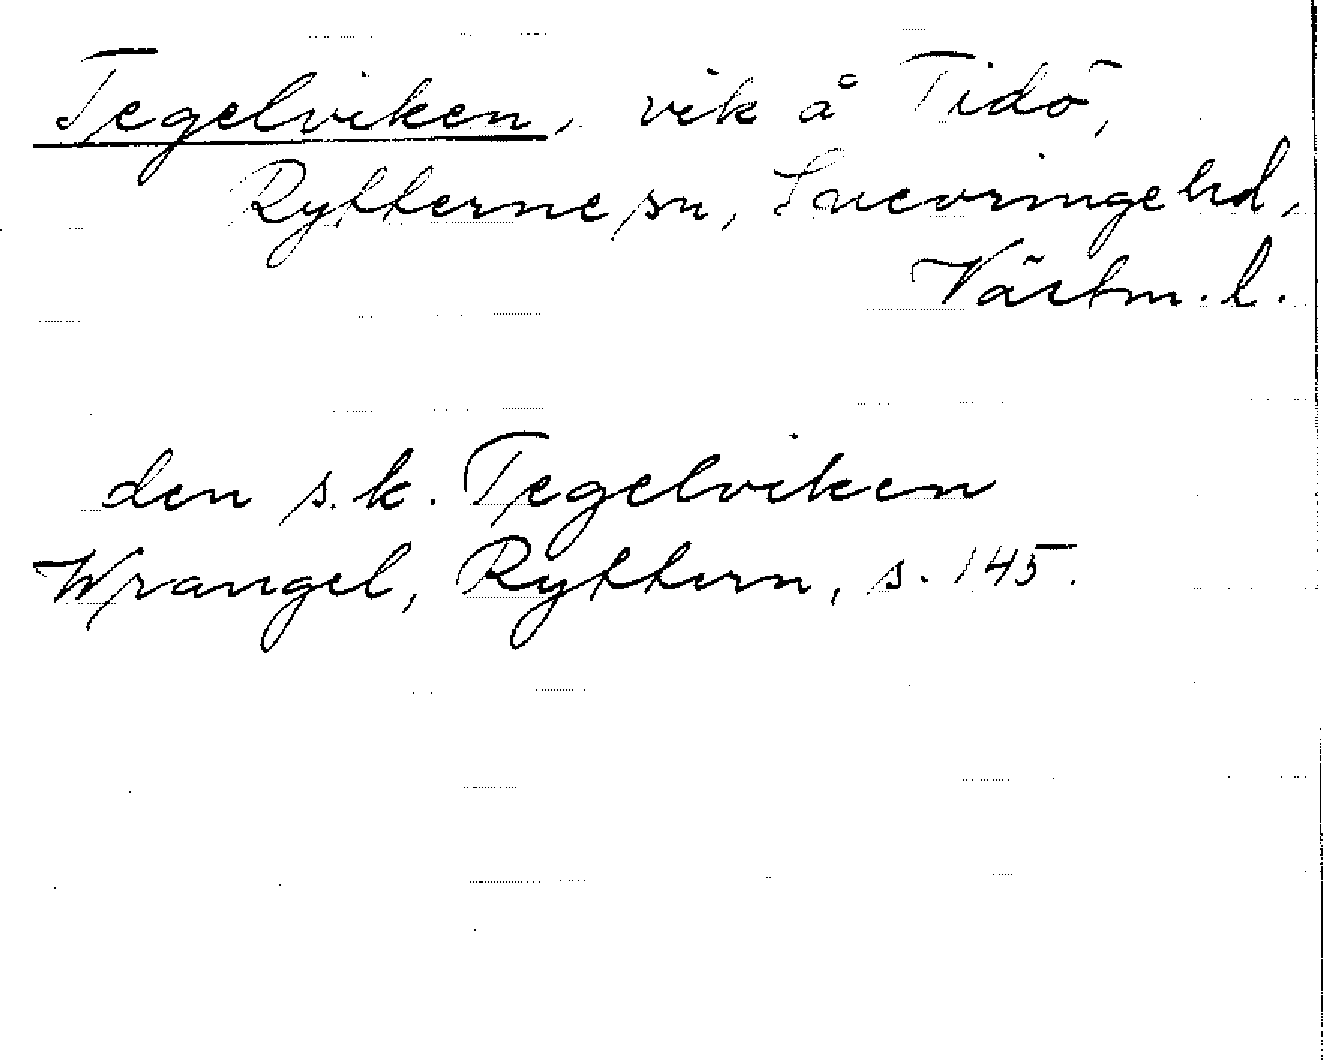 Tegelviken, vik å Tidö,
Rytterne sn, Snevringe hd,
Västm. l.
den s.k. Tegelviken
Wrangel, Ryttern, s. 145.